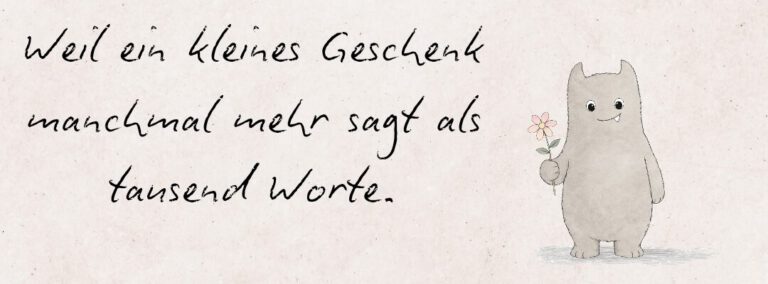 Weil ein kleines Geschenk
manchmal mehr sagt als
tausend Worte.